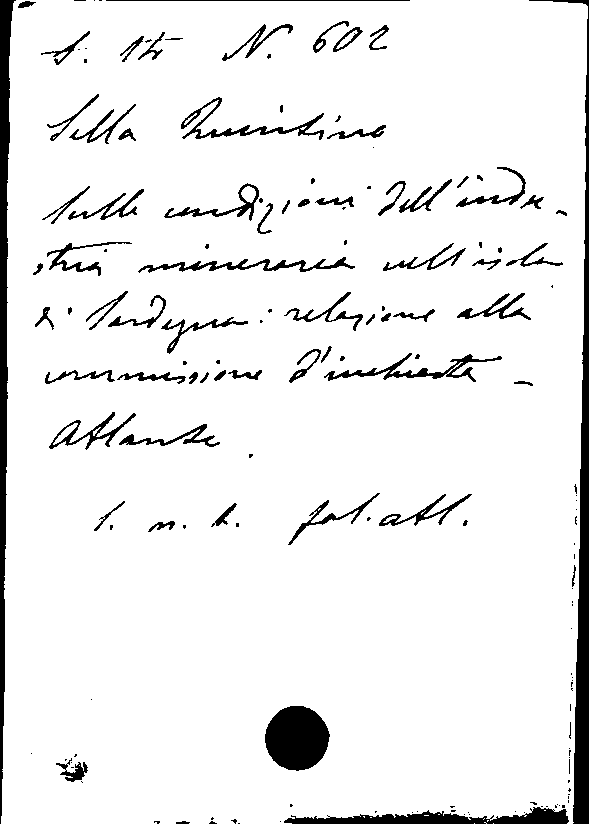 S. 14 N. 602
Sella Quintino
Sulle condizioni dell'indu-
stria mineraria nell'isola
di Sardegna: relazione alla
commissione d'inchiesta -
Atlante.
s. n. t. fol. atl.